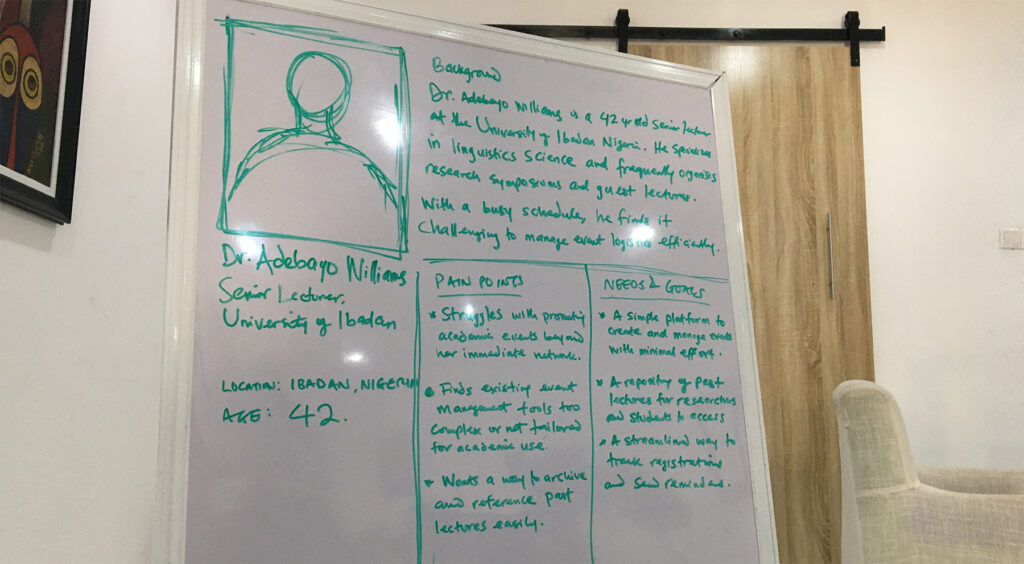 Background
Dr. Adebayo Williams is a 42 yr old senior lecturer
at the University of Ibadan Nigeria. He specializes
in linguistics science and frequently organises
research symposiums and guest lectures.
With a busy schedule, he finds it
challenging to manage event logistics efficiently.
Dr. Adebayo Williams
Senior Lecturer,
University of Ibadan
LOCATION: IBADAN, NIGERIA
AGE: 42.
PAIN POINTS
* Struggles with promoting
academic events beyond
her immediate network.
• Finds existing event
management tools too
complex or not tailored
for academic use.
* Wants a way to archive
and reference past
lectures easily.
NEEDS & GOALS
* A simple platform to
create and manage events
with minimal effort.
* A repository of past
lectures for researchers
and students to access
* A streamlined way to
track registrations
and send reminders.